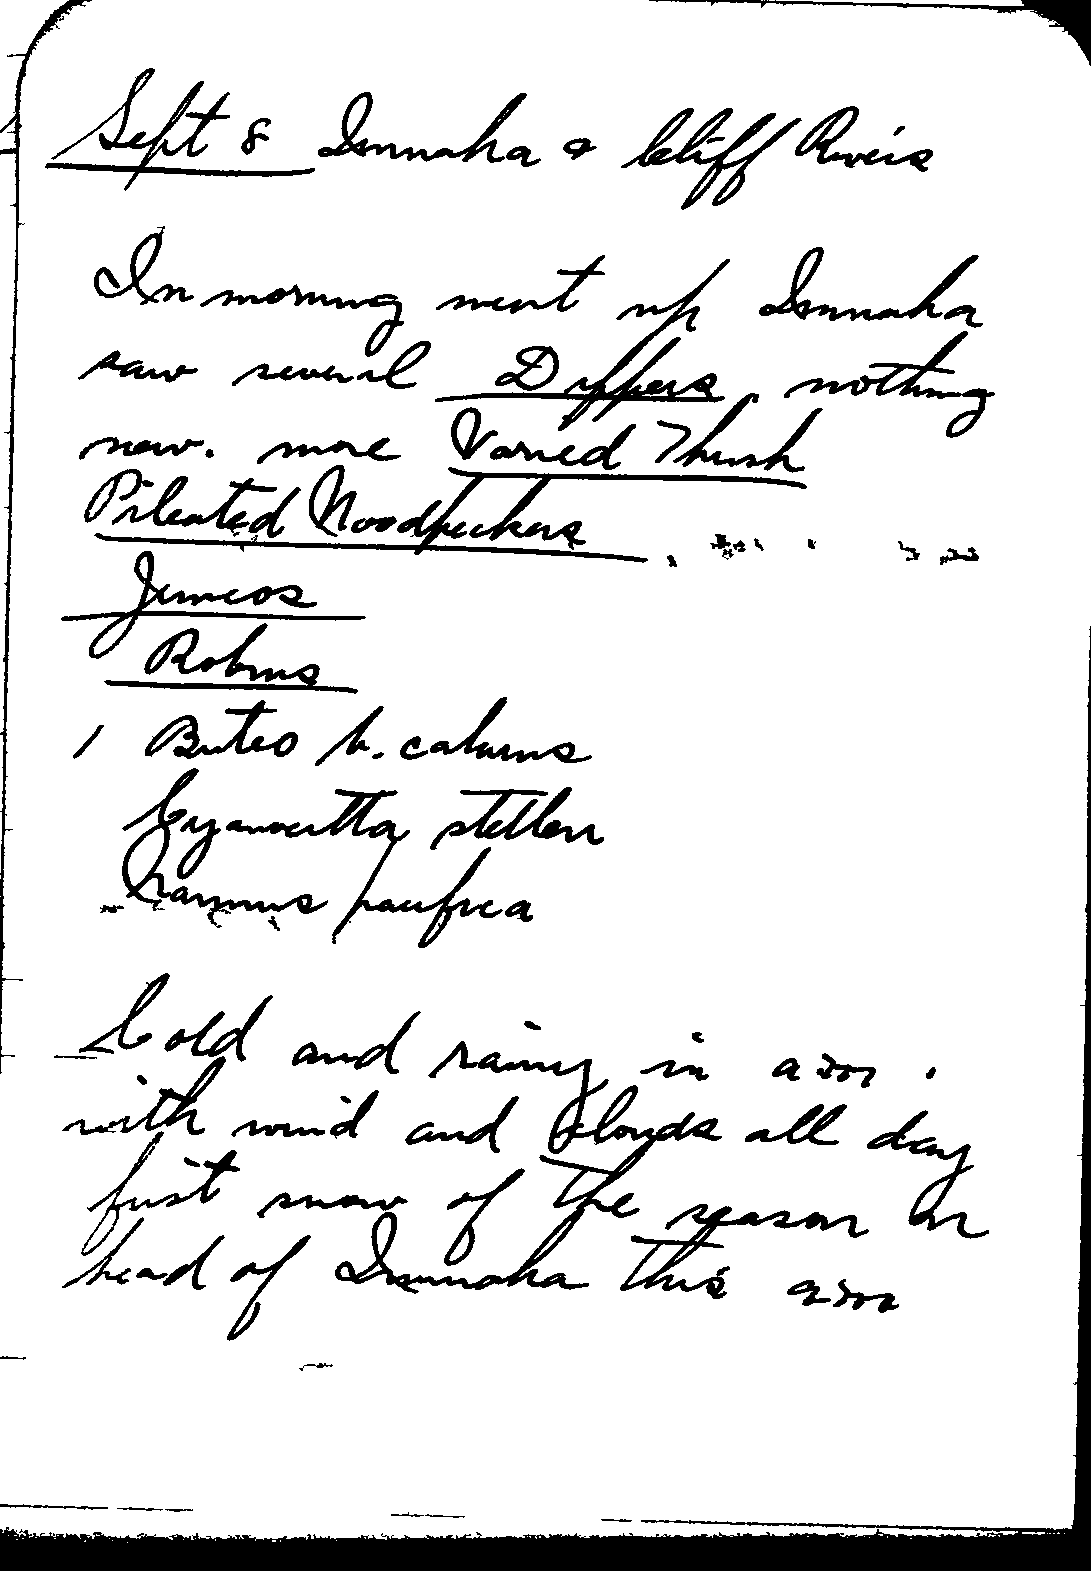 Sept 8 Imnaha & Cliff Rivers
In morning went up Imnaha
saw several Dippers, nothing
new. more Varied Thrush
Pileated Woodpeckers
Juncos
Robins
1 Buteo b. calurus
Cyanocitta stelleri
Cold and rainy in a.m.
with wind and clouds all day
first snow of the season on
head of Imnaha this a.m.